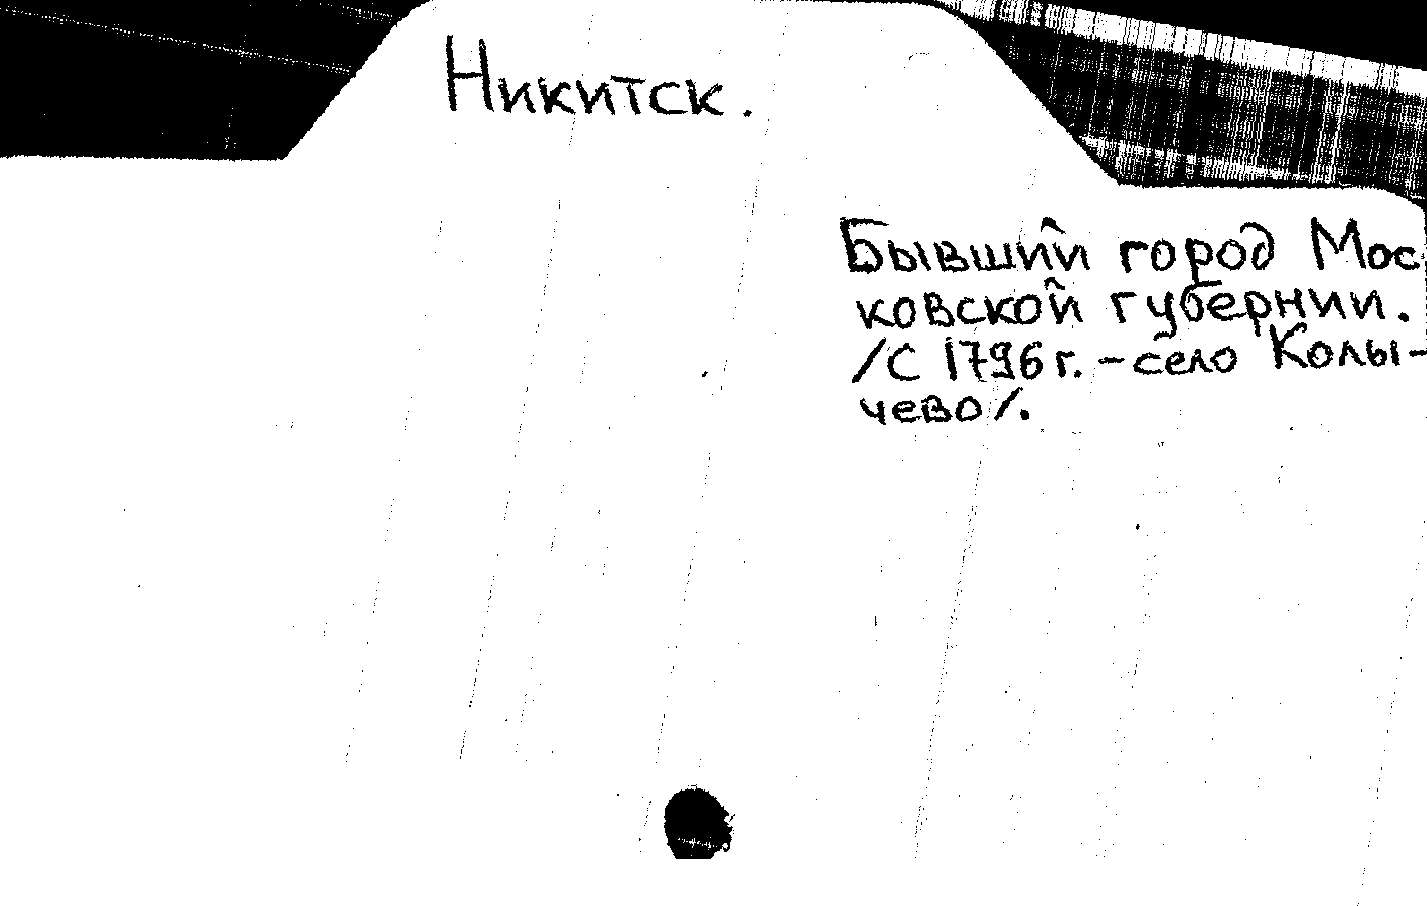 Никитск.
Бывший город Мос
ковской губернии.
/С 1796 г. - село Колы-
чево/.